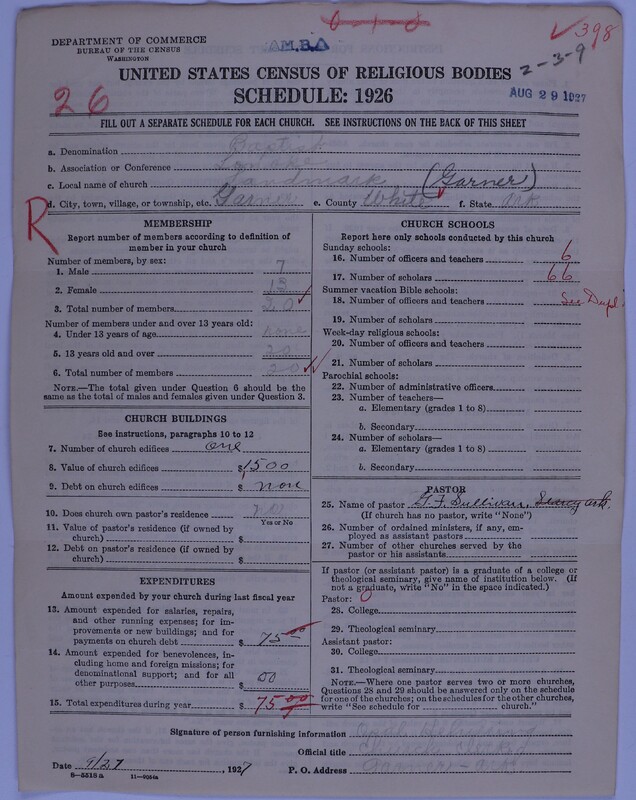 DEPARTMENT OF COMMERCE
BUREAU OF THE CENSUS
WASHINGTON
A.M.B.A
398
2-3-9
UNITED STATES CENSUS OF RELIGIOUS BODIES
SCHEDULE: 1926
26
AUG 29 1927
FILL OUT A SEPARATE SCHEDULE FOR EACH CHURCH. SEE INSTRUCTIONS ON THE BACK OF THIS SHEET
a. Denomination Baptist
b. Association or Conference
c. Local name of church Landmark (Garner)
d. City, town, village, or township, etc. Garner e. County White f. State Ark
R
MEMBERSHIP
Report number of members according to definition of
member in your church
Number of members, by sex:
1. Male 7
2. Female 13
3. Total number of members 20
Number of members under and over 13 years old:
4. Under 13 years of age none
5. 13 years old and over 20
6. Total number of members 20
NOTE.—The total given under Question 6 should be the
same as the total of males and females given under Question 3.
CHURCH BUILDINGS
See instructions, paragraphs 10 to 12
7. Number of church edifices one
8. Value of church edifices $1500
9. Debt on church edifices $ non
10. Does church own pastor's residence? no
Yes or No
11. Value of pastor's residence (if owned by
church) $
12. Debt on pastor's residence (if owned by
church) $
EXPENDITURES
Amount expended by your church during last fiscal year
13. Amount expended for salaries, repairs,
and other running expenses; for im-
provements or new buildings; and for
payments on church debt $ 75 00
14. Amount expended for benevolences, in-
cluding home and foreign missions; for
denominational support; and for all
other purposes $ 00
15. Total expenditures during year $ 75.00
CHURCH SCHOOLS
Report here only schools conducted by this church
Sunday schools:
16. Number of officers and teachers 6
17. Number of scholars 66
Summer vacation Bible schools:
18. Number of officers and teachers See Dupl.
19. Number of scholars
Week-day religious schools:
20. Number of officers and teachers
21. Number of scholars
Parochial schools:
22. Number of administrative officers
23. Number of teachers—
a. Elementary (grades 1 to 8)
b. Secondary
24. Number of scholars—
a. Elementary (grades 1 to 8)
b. Secondary
PASTOR
25. Name of pastor G. F. Sullivan, Searcy Ark.
(If church has no pastor, write "None")
26. Number of ordained ministers, if any, em-
ployed as assistant pastors
27. Number of other churches served by the
pastor or his assistants
If pastor (or assistant pastor) is a graduate of a college or
theological seminary, give name of institution below. (If
not a graduate, write "No" in the space indicated.)
Pastor: O
28. College
29. Theological seminary
Assistant pastor:
30. College
31. Theological seminary
NOTE.—Where one pastor serves two or more churches,
Questions 28 and 29 should be answered only on the schedule
for one of the churches; on the schedules for the other churches,
write "See schedule for church."
Signature of person furnishing information
Official title Church Clerk
Date 9/27, 1927 P. O. Address Garner - Ark
8-5518 a 11-9064a